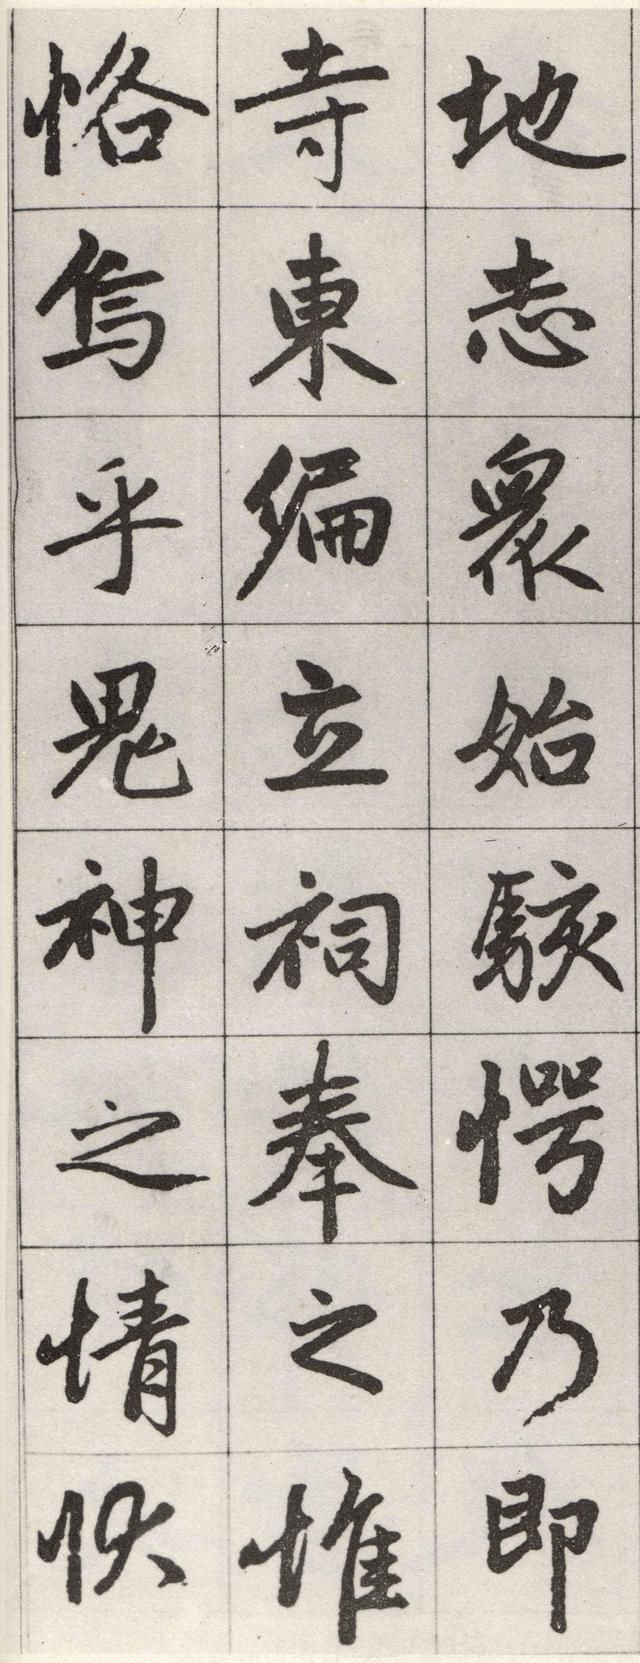 地志眾始駭愕乃即
寺東偏立祠奉之惟
恪烏乎鬼神之情状